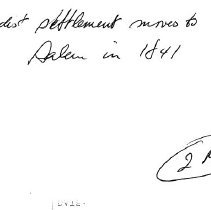 settlement moves to
Salem in 1841
2